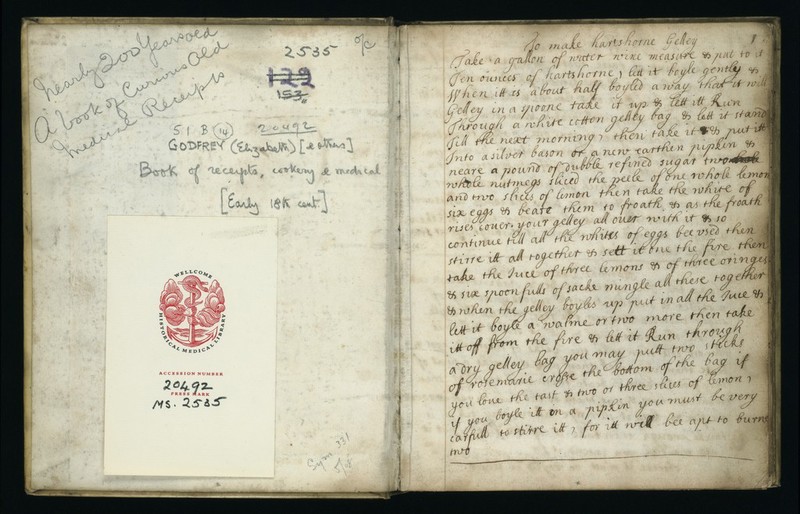 nearly 200 Years old
A book of Curious Old
Medical Receipts
2535
o/c
129
153
51 B (14) 20492
GODFREY (Elizabeth) [& others]
Book of receipts, cookery & medical
[Early 18th cent]
WELLCOME
HISTORICAL MEDICAL LIBRARY
ACCESSION NUMBER
20492
PRESS MARK
MS. 2535
1
To make hartshorne Gelley
Take a gallon of water wine measure & put to it
Ten ounces of hartshorne, lett it boyle gently &
When itt is about half boyled away that it will
Gelley in a spoone take it up & lett itt Run
Through a white cotton gelley bag & lett it stand
Till the next morning, then take it & put itt
Into a silver bason or a new earthen pipkin &
neare a pound of dubble refined sugar two
whole nutmegs sliced the peele of one whole lemon
and two slices of limon then take the white of
six eggs & beate them to froath & as the froath
rises cover your gelley all over with it & so
continue till all the whites of eggs bee used then
stirre itt all together & sett it one the fire then
take the Juce of three lemons & of three oringes
& six spoonfulls of sacke mingle all these together
& when the gelley boyles up put in all the Juce &
lett it boyle a walme or two more then take
itt off from the fire & lett it Run through
a dry gelley bag you may putt two sticks
of rosemarie crose the bottom of the bag if
you love the tast & two or three slices of lemon,
if you boyle itt on a pipkin you must be very
carfull to stirre itt, for itt will bee apt to burne
two